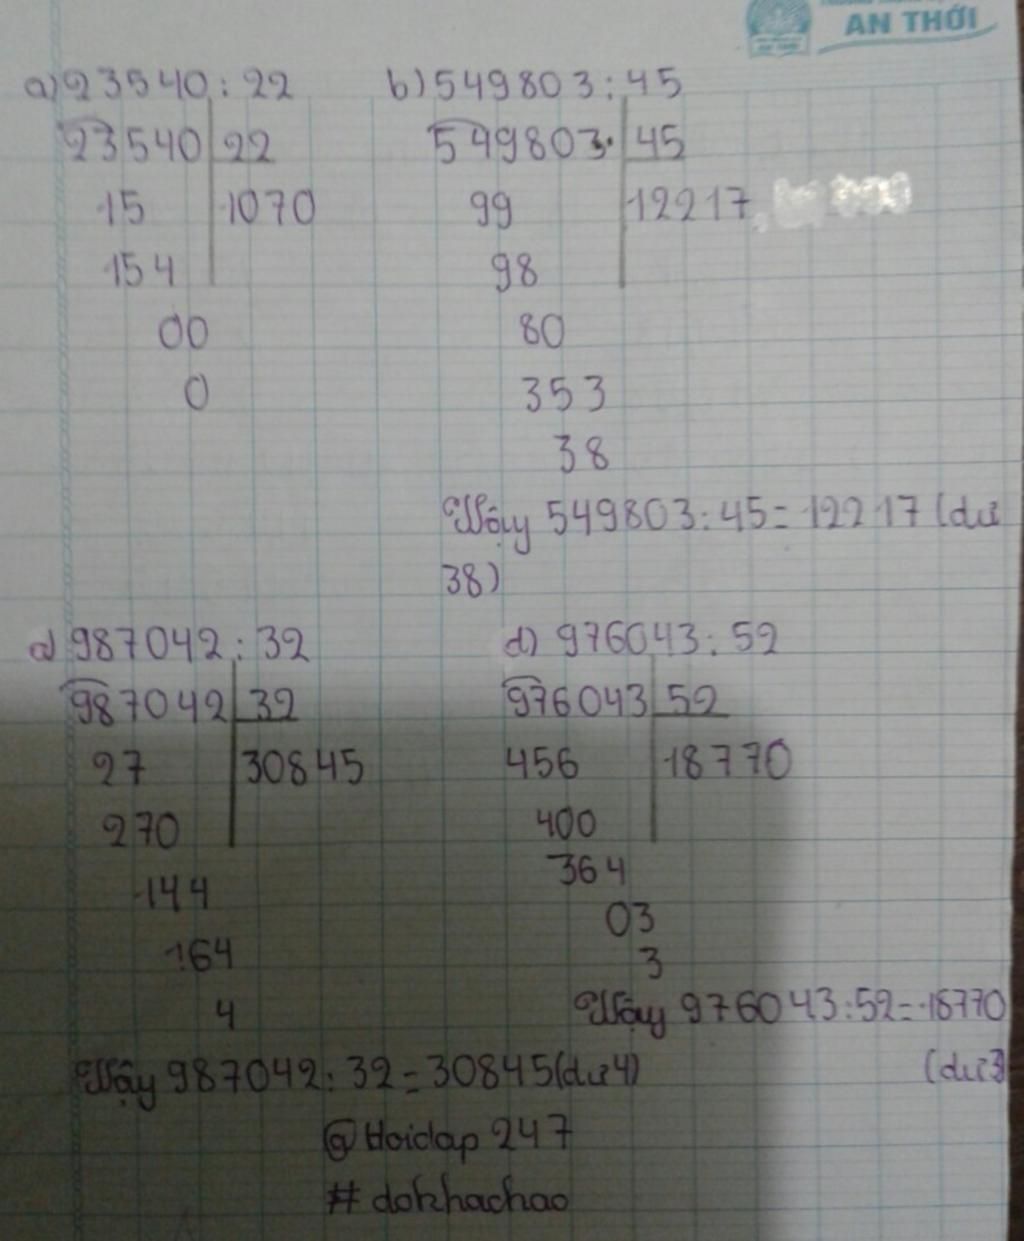 AN THỚI
a) 23540 : 22
23540 22
15 1070
154
00
0
b) 549803 : 45
549803 45
99 12217
98
80
353
38
Vậy 549803 : 45 = 12217 (dư
38)
c) 987042 : 32
987042 32
27 30845
270
144
164
4
Vậy 987042 : 32 = 30845 (dư 4)
d) 976043 : 52
976043 52
456 18770
400
364
03
3
Vậy 976043 : 52 = 18770
(dư 3
@Hoidap 247
# dokhachao